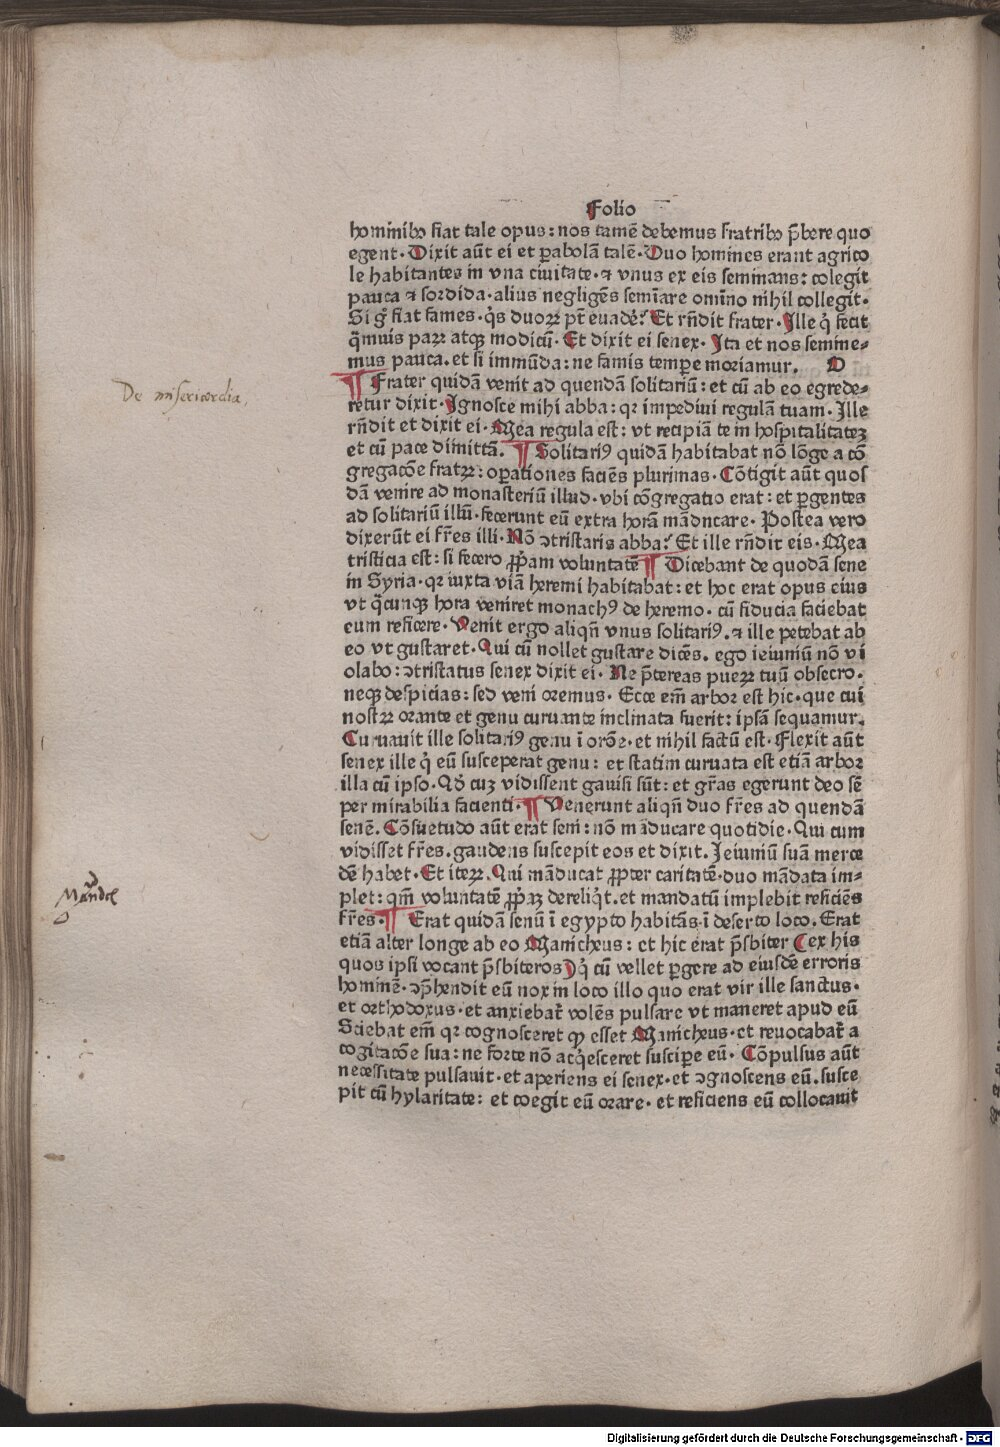 Folio
hominibꝰ fiat tale opus: nos tamē debemus fratribꝰ p̄bere quo
egent. Dixit aūt ei et ꝑabolā talē. Duo homines erant agrico
le habitantes in vna ciuitate. ⁊ vnus ex eis seminans: colegit
pauca ⁊ sordida. alius negligēs semīare omīno nihil collegit.
Si gͦ fiat fames. q̇s duoꝝ pt̄ euadē? Et rn̄dit frater. Ille q̇ fecit
q̄muis paꝝ atqꝫ modicū. Et dixit ei senex. Ita et nos semine-
mus pauca. et si immūda: ne famis tempe moriamur. O
De misericordia
¶ Frater quidā venit ad quendā solitariū: et cū ab eo egrede-
retur dixit. Ignosce mihi abba: qꝛ impediui regulā tuam. Ille
rn̄dit et dixit ei. Mea regula est: vt recipiā te in hospitalitateꝫ
et cū pace dimittā. ¶ Solitariꝰ quidā habitabat nō lōge a cō
gregacōe fratꝝ: oꝑationes faciēs plurimas. Cōtigit aūt quos
dā venire ad monasteriū illud. vbi cōgregatio erat: et ꝑgentes
ad solitariū illū. fecerunt eū extra horā māducare. Postea vero
dixerūt ei fr̄es illi. Nō ↄtristaris abba? Et ille rn̄dit eis. Mea
tristicia est: si fecero ꝓpam voluntatē ¶ Dicebant de quodā sene
in Syria. qꝛ iuxta viā heremi habitabat: et hoc erat opus eius
vt q̄cunqꝫ hora veniret monachꝰ de heremo. cū fiducia faciebat
eum reficere. Venit ergo aliqn̄ vnus solitariꝰ. ⁊ ille petebat ab
eo vt gustaret. Qui cū nollet gustare dicēs. ego ieiuniū nō vi
olabo: ↄtristatus senex dixit ei. Ne p̄tereas pueꝝ tuū obsecro.
neqꝫ despicias: sed veni oremus. Ecce em̄ arbor est hic. que cui
nostꝝ orante et genu curuante inclinata fuerit: ipsā sequamur.
Curuauit ille solitariꝰ genu ī orōe. et nihil factū est. Flexit aūt
senex ille q̇ eū susceperat genu: et statim curuata est etiā arbor
illa cū ipso. Qđ cuꝫ vidissent gauisi sūt: et gr̄as egerunt deo sē
per mirabilia facienti. ¶ Venerunt aliqn̄ duo fr̄es ad quendā
senē. Cōsuetudo aūt erat seni: nō māducare quotidie. Qui cum
vidisset fr̄es. gaudens suscepit eos et dixit. Ieiuniū suā merce
dē habet. Et iteꝝ. Qui māducat ꝓpter caritatē. duo mādata im-
plet: qm̄ voluntatē ꝓpaꝫ dereliq̇t. et mandatū implebit reficiēs
fr̄es. ¶ Erat quidā senū ī egypto habitās. ī deserto loco. Erat
etiā alter longe ab eo Manicheus: et hic erat p̄sbiter (ex his
quos ipsi vocant p̄sbiteros) q̇ cū vellet ꝑgere ad eiusdē erroris
hominē. ↄp̄hendit eū nox in loco illo quo erat vir ille sanctus.
et orthodoxus. et anxiebat̄ volēs pulsare vt maneret apud eū
Sciebat em̄ qꝛ cognosceret ꝙ esset Manicheus. et reuocabat̄ a
cogitacōe sua: ne forte nō acq̇esceret suscipe eū. Cōpulsus aūt
necessitate pulsauit. et aperiens ei senex. et ↄgnoscens eū. susce
pit cū hylaritate: et coegit eū orare. et reficiens eū collocauit
Digitalisierung gefördert durch die Deutsche Forschungsgemeinschaft - DFG